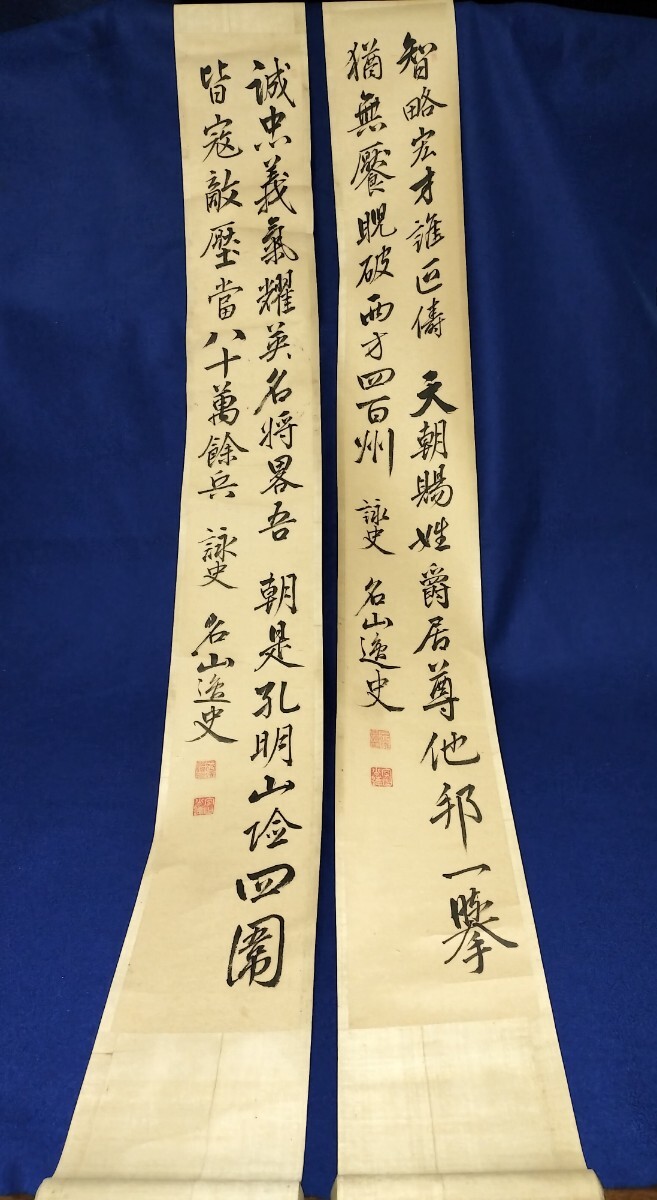 智略宏才誰匹儔 天朝賜姓爵居尊他邦一擧
猶無饜睨破西方四百州 詠史 名山逸史
誠忠義氣耀英名將畧吾 朝是孔明山険四圍
皆寇敵壓當八十萬餘兵 詠史 名山逸史